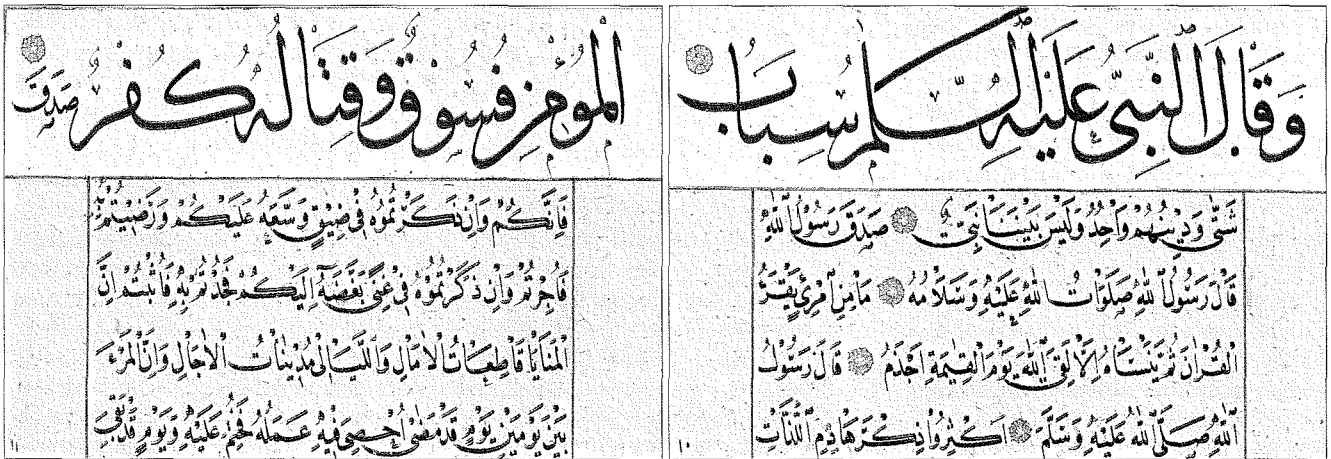 وَقَالَ النَّبِيُّ عَلَيْهِ السَّلَمُ سِبَابُ
شَتَّى وَدِينُهُمْ وَاحِدٌ وَلَيْسَ بَيْنَنَا نَبِيٌّ صَدَقَ رَسُولُ اللهِ
قَالَ رَسُولُ اللهِ صَلَوَاتُ اللهِ عَلَيْهِ وَسَلَامُهُ مَا مِنِ امْرِئٍ يَقْرَأُ
الْقُرْاٰنَ ثُمَّ يَنْسَاهُ اِلَّا لَقِيَ اللهَ يَوْمَ الْقِيٰمَةِ اَجْذَمُ قَالَ رَسُولُ
اللهِ صَلَّى اللهُ عَلَيْهِ وَسَلَّمَ اَكْثِرُوا ذِكْرَ هَاذِمِ اللَّذَّاتِ
١٠
الْمُؤْمِنِ فُسُوقٌ وَقِتَالُهُ كُفْرٌ صَدَقَ
فَاِنَّكُمْ وَاِنْ ذَكَرْتُمُوهُ فِي ضِيقٍ وَسَّعَهُ عَلَيْكُمْ وَرَضِيتُمْ بِهِ
فَاُجِرْتُمْ وَاِنْ ذَكَرْتُمُوهُ فِي غِنًى بَغَّضَهُ اِلَيْكُمْ فَجُدْتُمْ بِهِ فَاُثِبْتُمْ اِنَّ
الْمَنَايَا قَاطِعَاتُ الْاٰمَالِ وَاللَّيَالِي مُدْنِيَاتُ الْاٰجَالِ وَاِنَّ الْمَرْءَ
بَيْنَ يَوْمَيْنِ يَوْمٍ قَدْ مَضٰى اُحْصِيَ فِيهِ عَمَلُهُ فَخُتِمَ عَلَيْهِ وَيَوْمٍ قَدْ بَقِيَ
١١